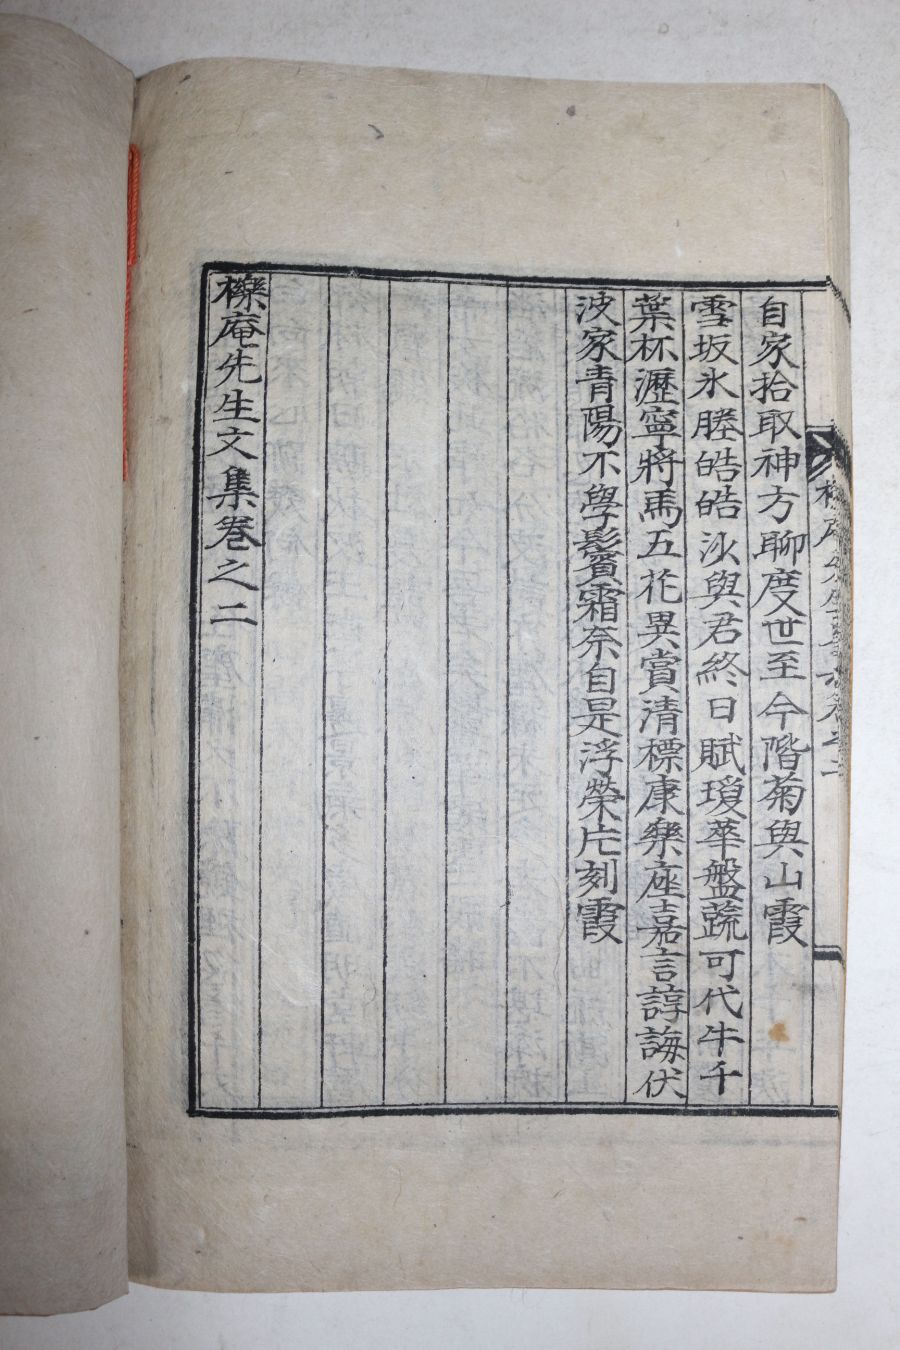 自家拾取神方聊度世至今階菊與山霞
雪坂氷塍皓皓沙與君終日賦瓊華盤蔬可代牛千
葉杯瀝寧將馬五花異賞清標康樂座嘉言諄誨伏
波家青陽不學鬢霜奈自是浮榮片刻霞
櫟庵先生文集卷之二